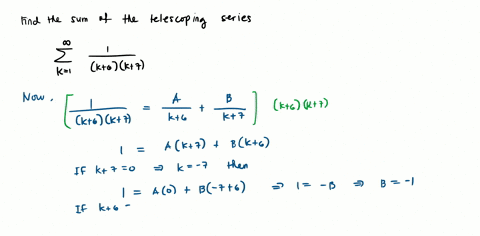 Find the sum of the telescoping series
∞
∑ 1/((k+6)(k+7))
k=1
Now, [ 1/((k+6)(k+7)) = A/(k+6) + B/(k+7) ] (k+6)(k+7)
1 = A(k+7) + B(k+6)
If k+7=0 ⇒ k=-7 then
1 = A(0) + B(-7+6) ⇒ 1 = -B ⇒ B = -1
If k+6 =